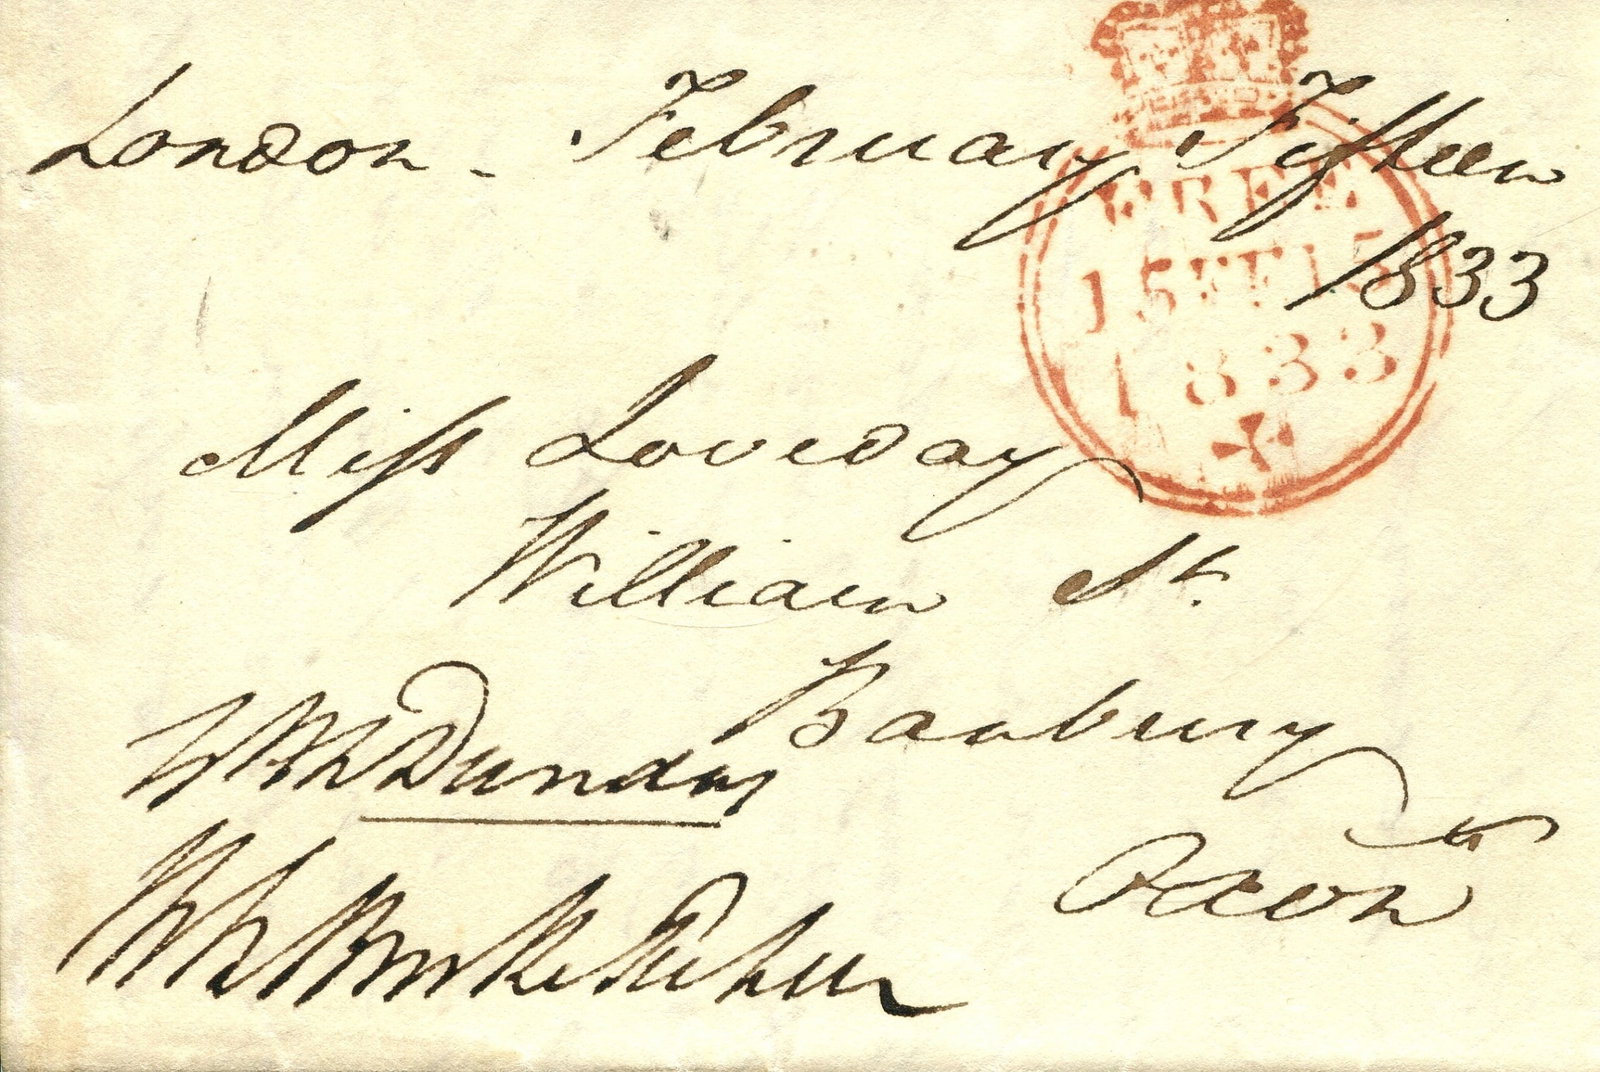 London - February Fifteen
1833
FREE
15FE15
1833
Miss Loveday
William St.
Banbury
Oxon
Dundas